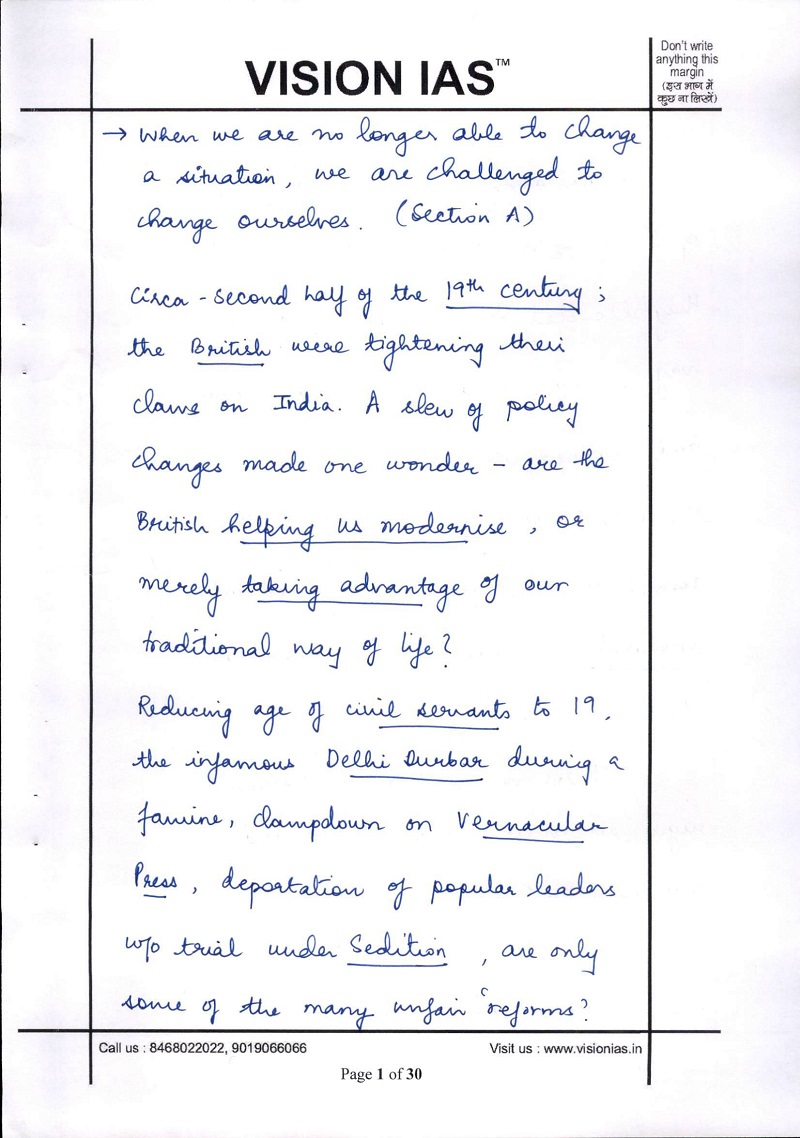 VISION IAS™
Don't write
anything this
margin
(इस भाग में
कुछ ना लिखें)
→ When we are no longer able to change
a situation, we are challenged to
change ourselves. (Section A)
Circa - second half of the 19th century;
the British were tightening their
claws on India. A slew of policy
changes made one wonder – are the
British helping us modernise, or
merely taking advantage of our
traditional way of life?
Reducing age of civil servants to 19,
the infamous Delhi Durbar during a
famine, clampdown on Vernacular
Press, deportation of popular leaders
w/o trial under Sedition, are only
some of the many unfair 'reforms'.
Call us : 8468022022, 9019066066
Visit us : www.visionias.in
Page 1 of 30